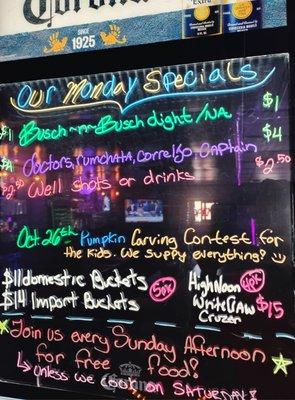 Corona
Extra
SINCE
1925
Our Monday Specials
$1 Busch -n- Busch Light /NA $1
$4 Doctors, rumchata, correljo Captain $4
$2.50 Well shots or drinks $2.50
Oct. 26th Pumpkin Carving Contest for
the kids. We supply everything!
$11 domestic Buckets 5pk HighNoon 4pk
$14 Import Buckets White Claw $15
Cruzer
Join us every Sunday Afternoon
for free food!
↳ unless we cook on SATURDAY!